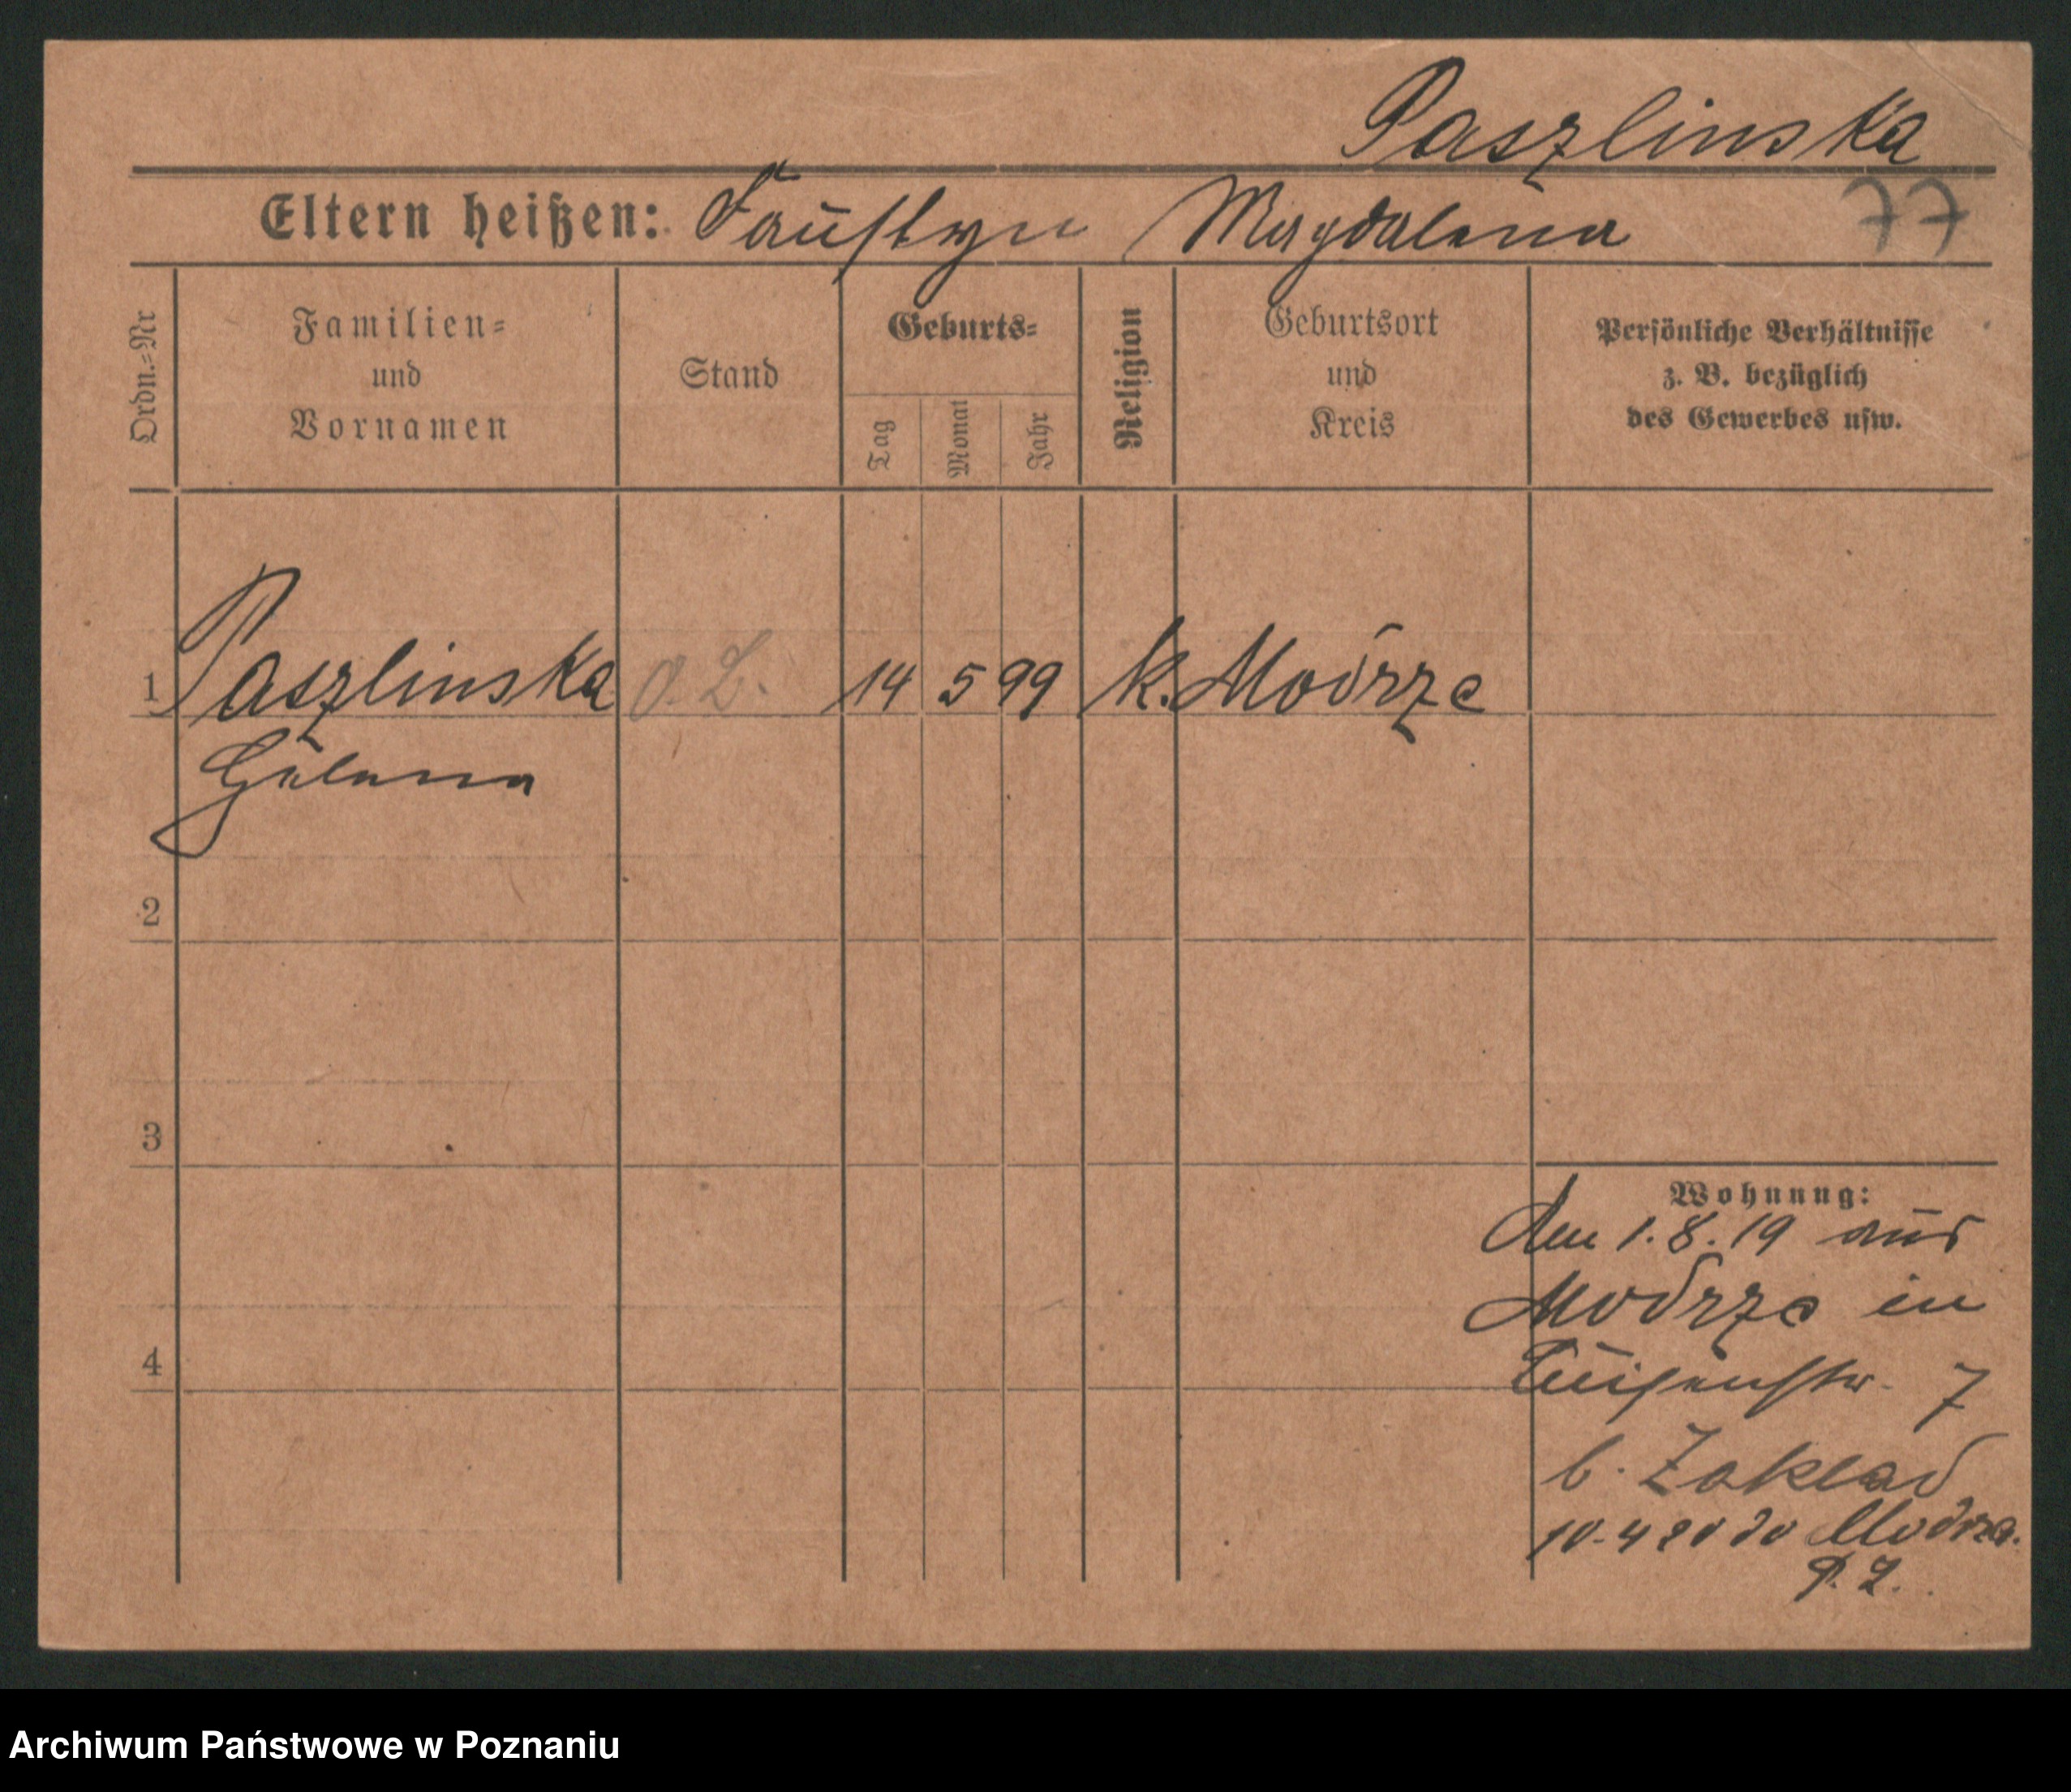 Paszlinska
Eltern heißen: Faustyn Magdalena 77
Ordn.=Nr
Familien=
und
Vornamen
Stand
Geburts=
Tag
Monat
Jahr
Religion
Geburtsort
und
Kreis
Persönliche Verhältnisse
z. B. bezüglich
des Gewerbes usw.
1 Paszlinska 14 5 99 k. Modrze
Helena
2
3
4
Wohnung:
den 1.8.19 aus
Modrze in
Luisenstr. 7
b. Zaklad
10.4 20 do Modrza.